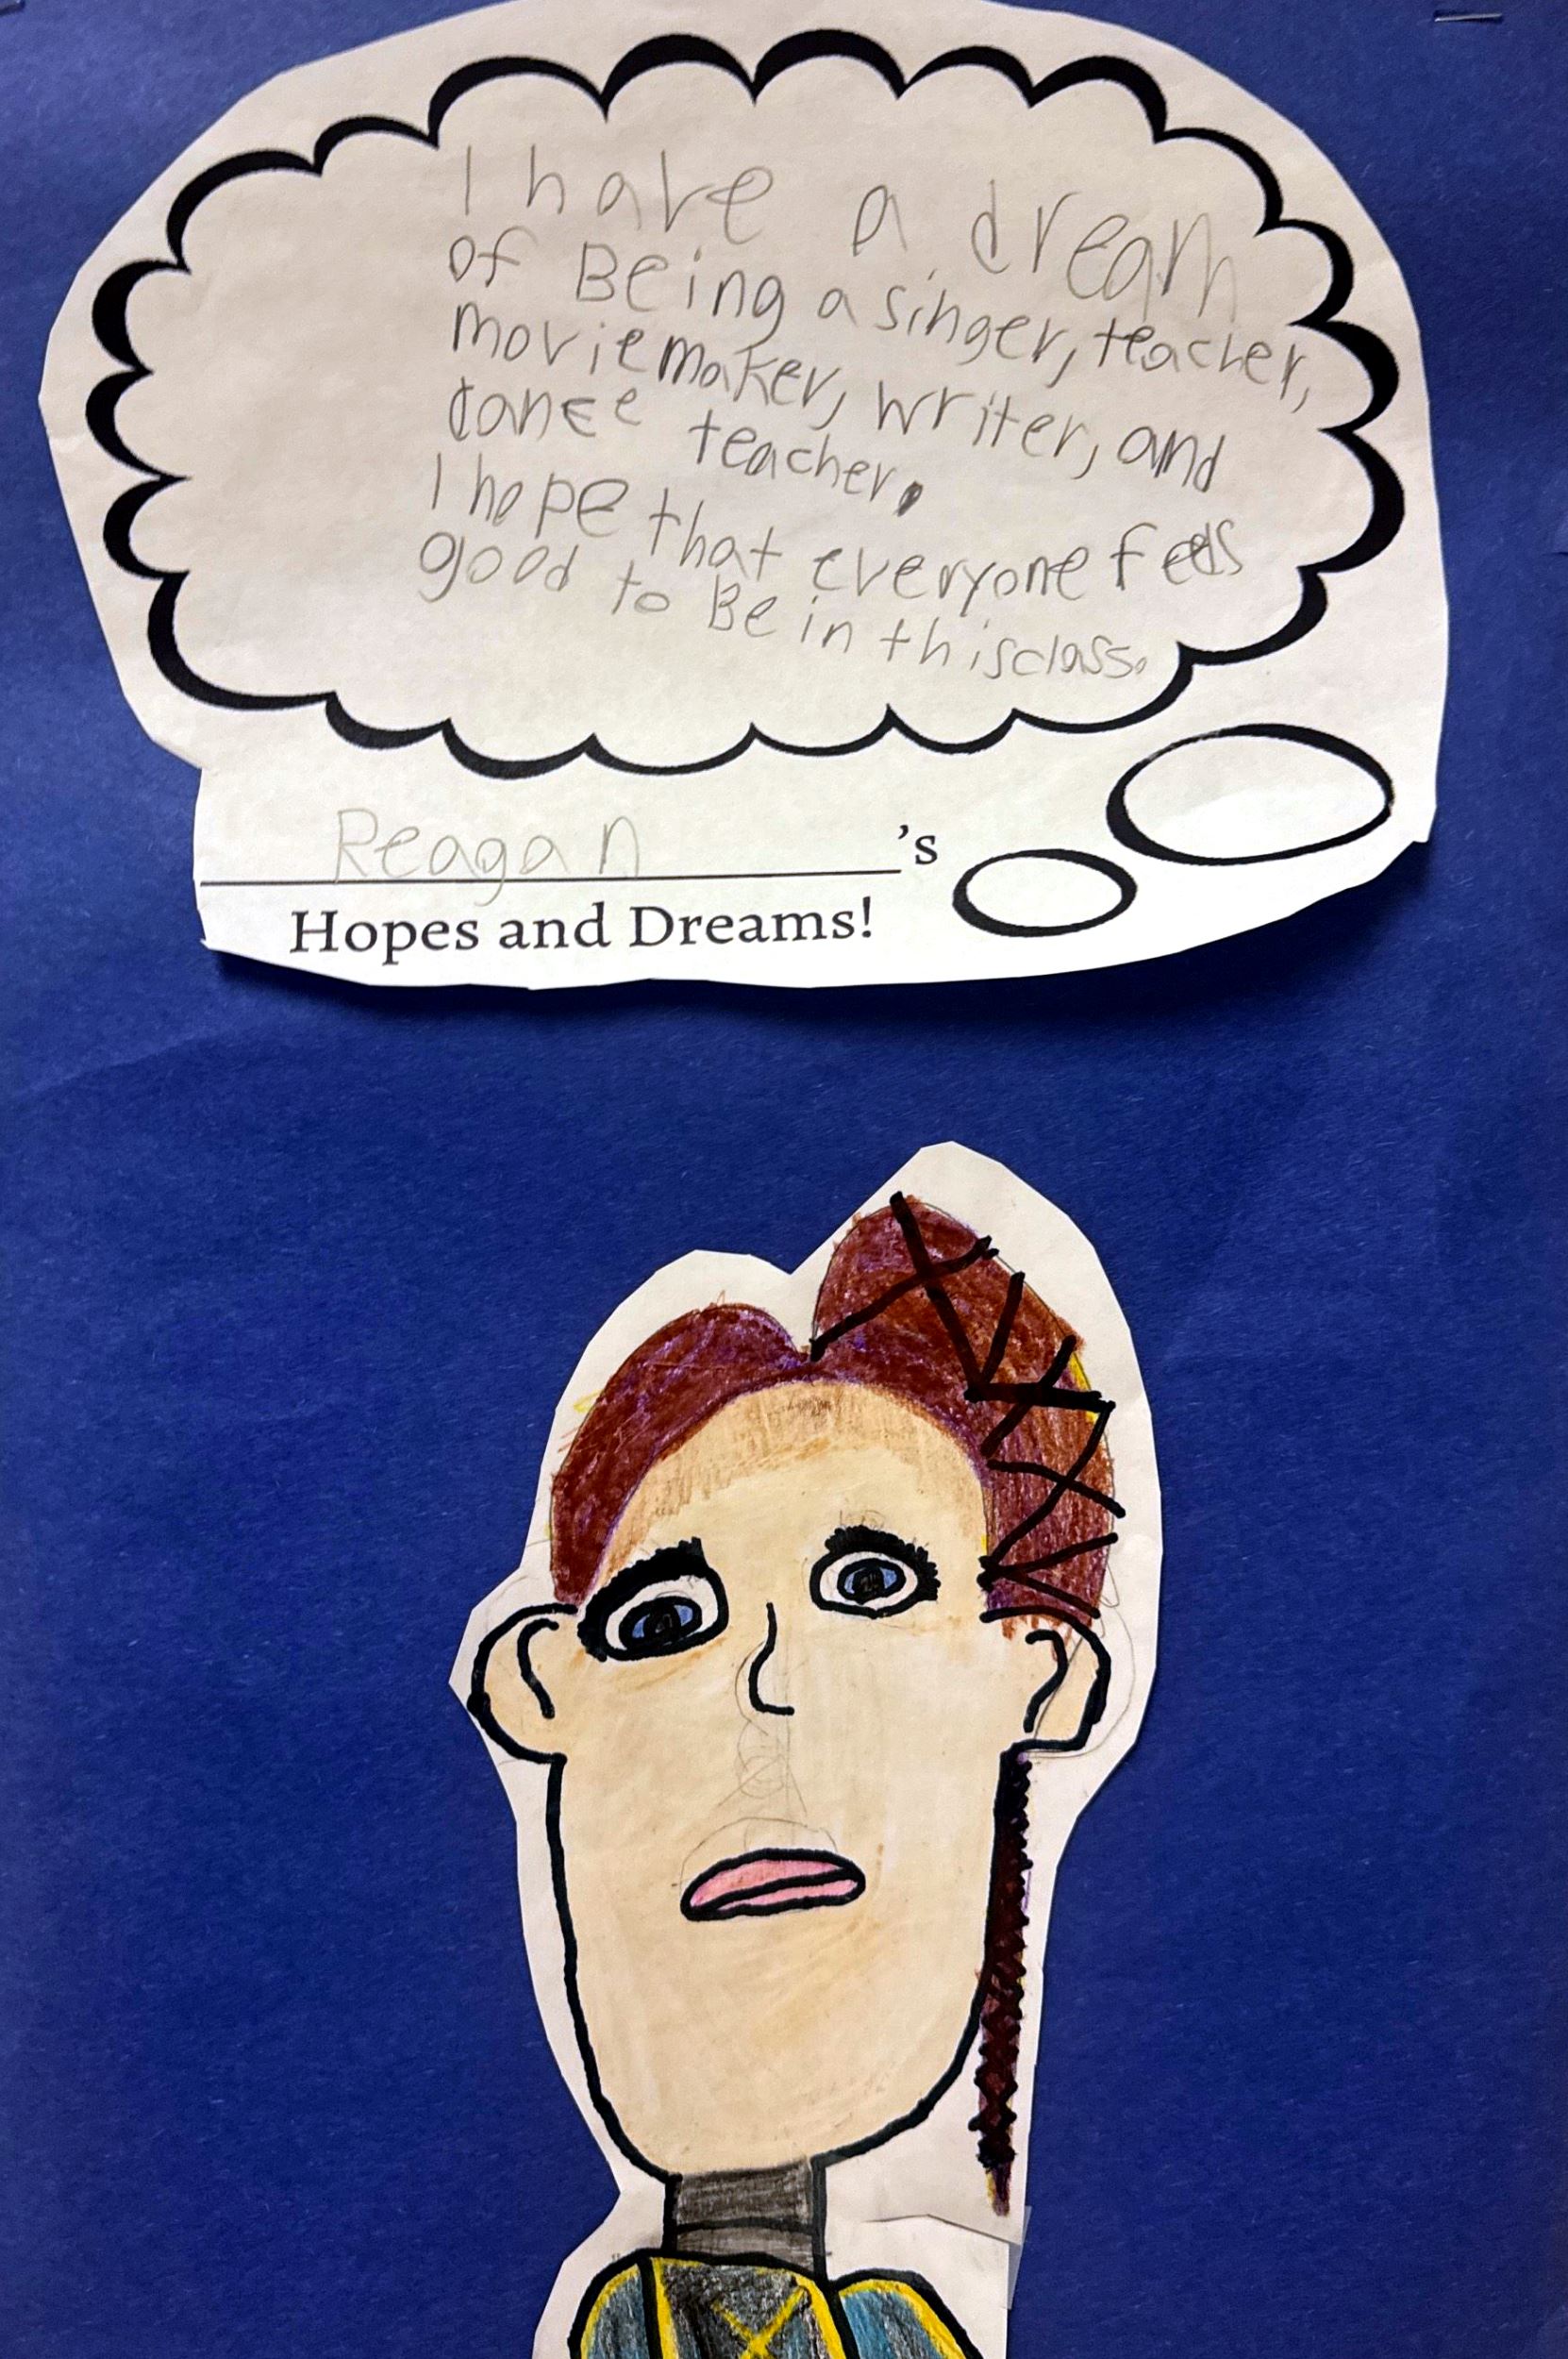 I have a dream
of Being a singer, teacher,
moviemaker, writer, and
dance teacher.
I hope that everyone feels
good to Be in this class.
Reagan's
Hopes and Dreams!